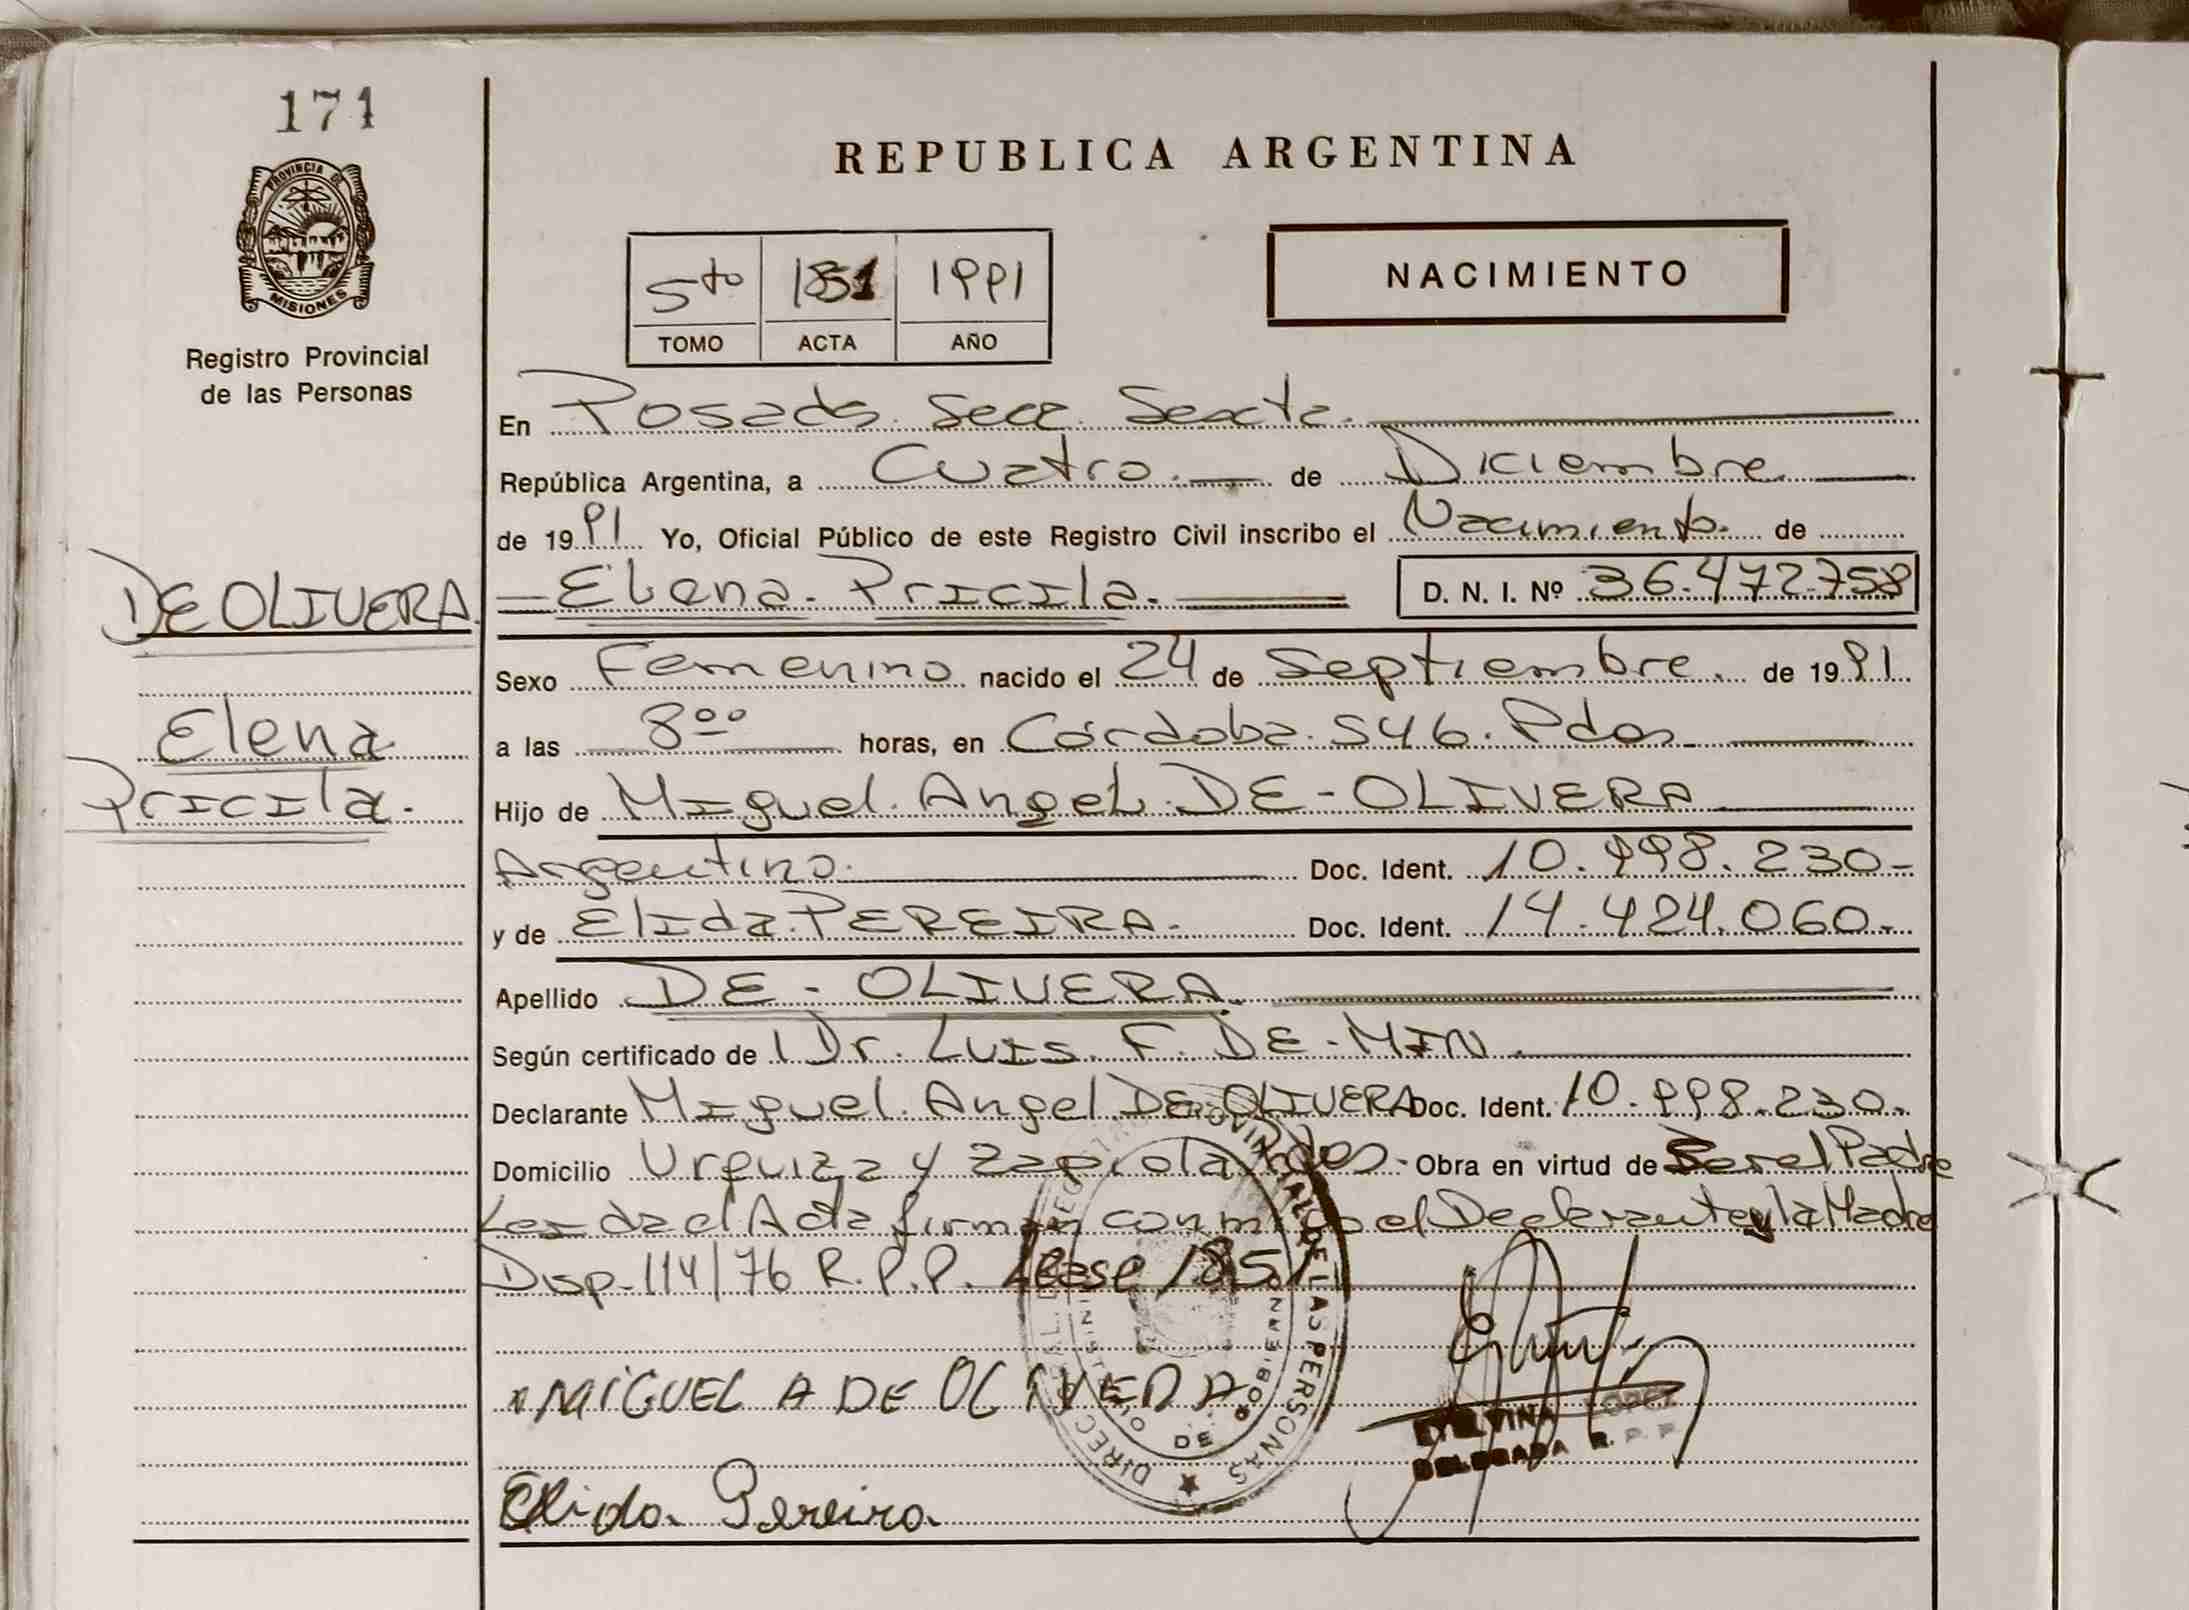 171
PROVINCIA DE
MISIONES
Registro Provincial
de las Personas
REPUBLICA ARGENTINA
5to 1851 1991
TOMO ACTA AÑO
NACIMIENTO
En Posadas Secc. Sexta.
República Argentina, a Cuatro. de Diciembre
de 1991 Yo, Oficial Público de este Registro Civil inscribo el Nacimiento. de
DE OLIVERA Elena. Pricila. D. N. I. Nº 36.472.758
Sexo Femenino nacido el 24 de Septiembre. de 1991
Elena a las 8oo horas, en Córdoba. 546. Pdas
Pricila. Hijo de Miguel. Angel. DE-OLIVERA
Argentino. Doc. Ident. 10.998.230-
y de Elida. PEREIRA. Doc. Ident. 14.424.060-
Apellido DE-OLIVERA.
Según certificado de Dr. Luis. F. DE-MIN
Declarante Miguel. Angel DE-OLIVERA Doc. Ident. 10.998.230.
Domicilio Urquiza y Zapiola Pdas- Obra en virtud de Ser el Padre
Leida el Acta firman conmigo el Declarante y la Madre
Disp-114/76 R.P.P. Lease 1851
MIGUEL A DE OLIVERA
LOPEZ
DELEGADA R.P.P.
Elida Pereira
DE LAS PERSONAS
DE GOBIERNO